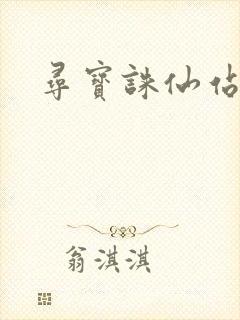 尋寶誅仙佔
翁淇淇